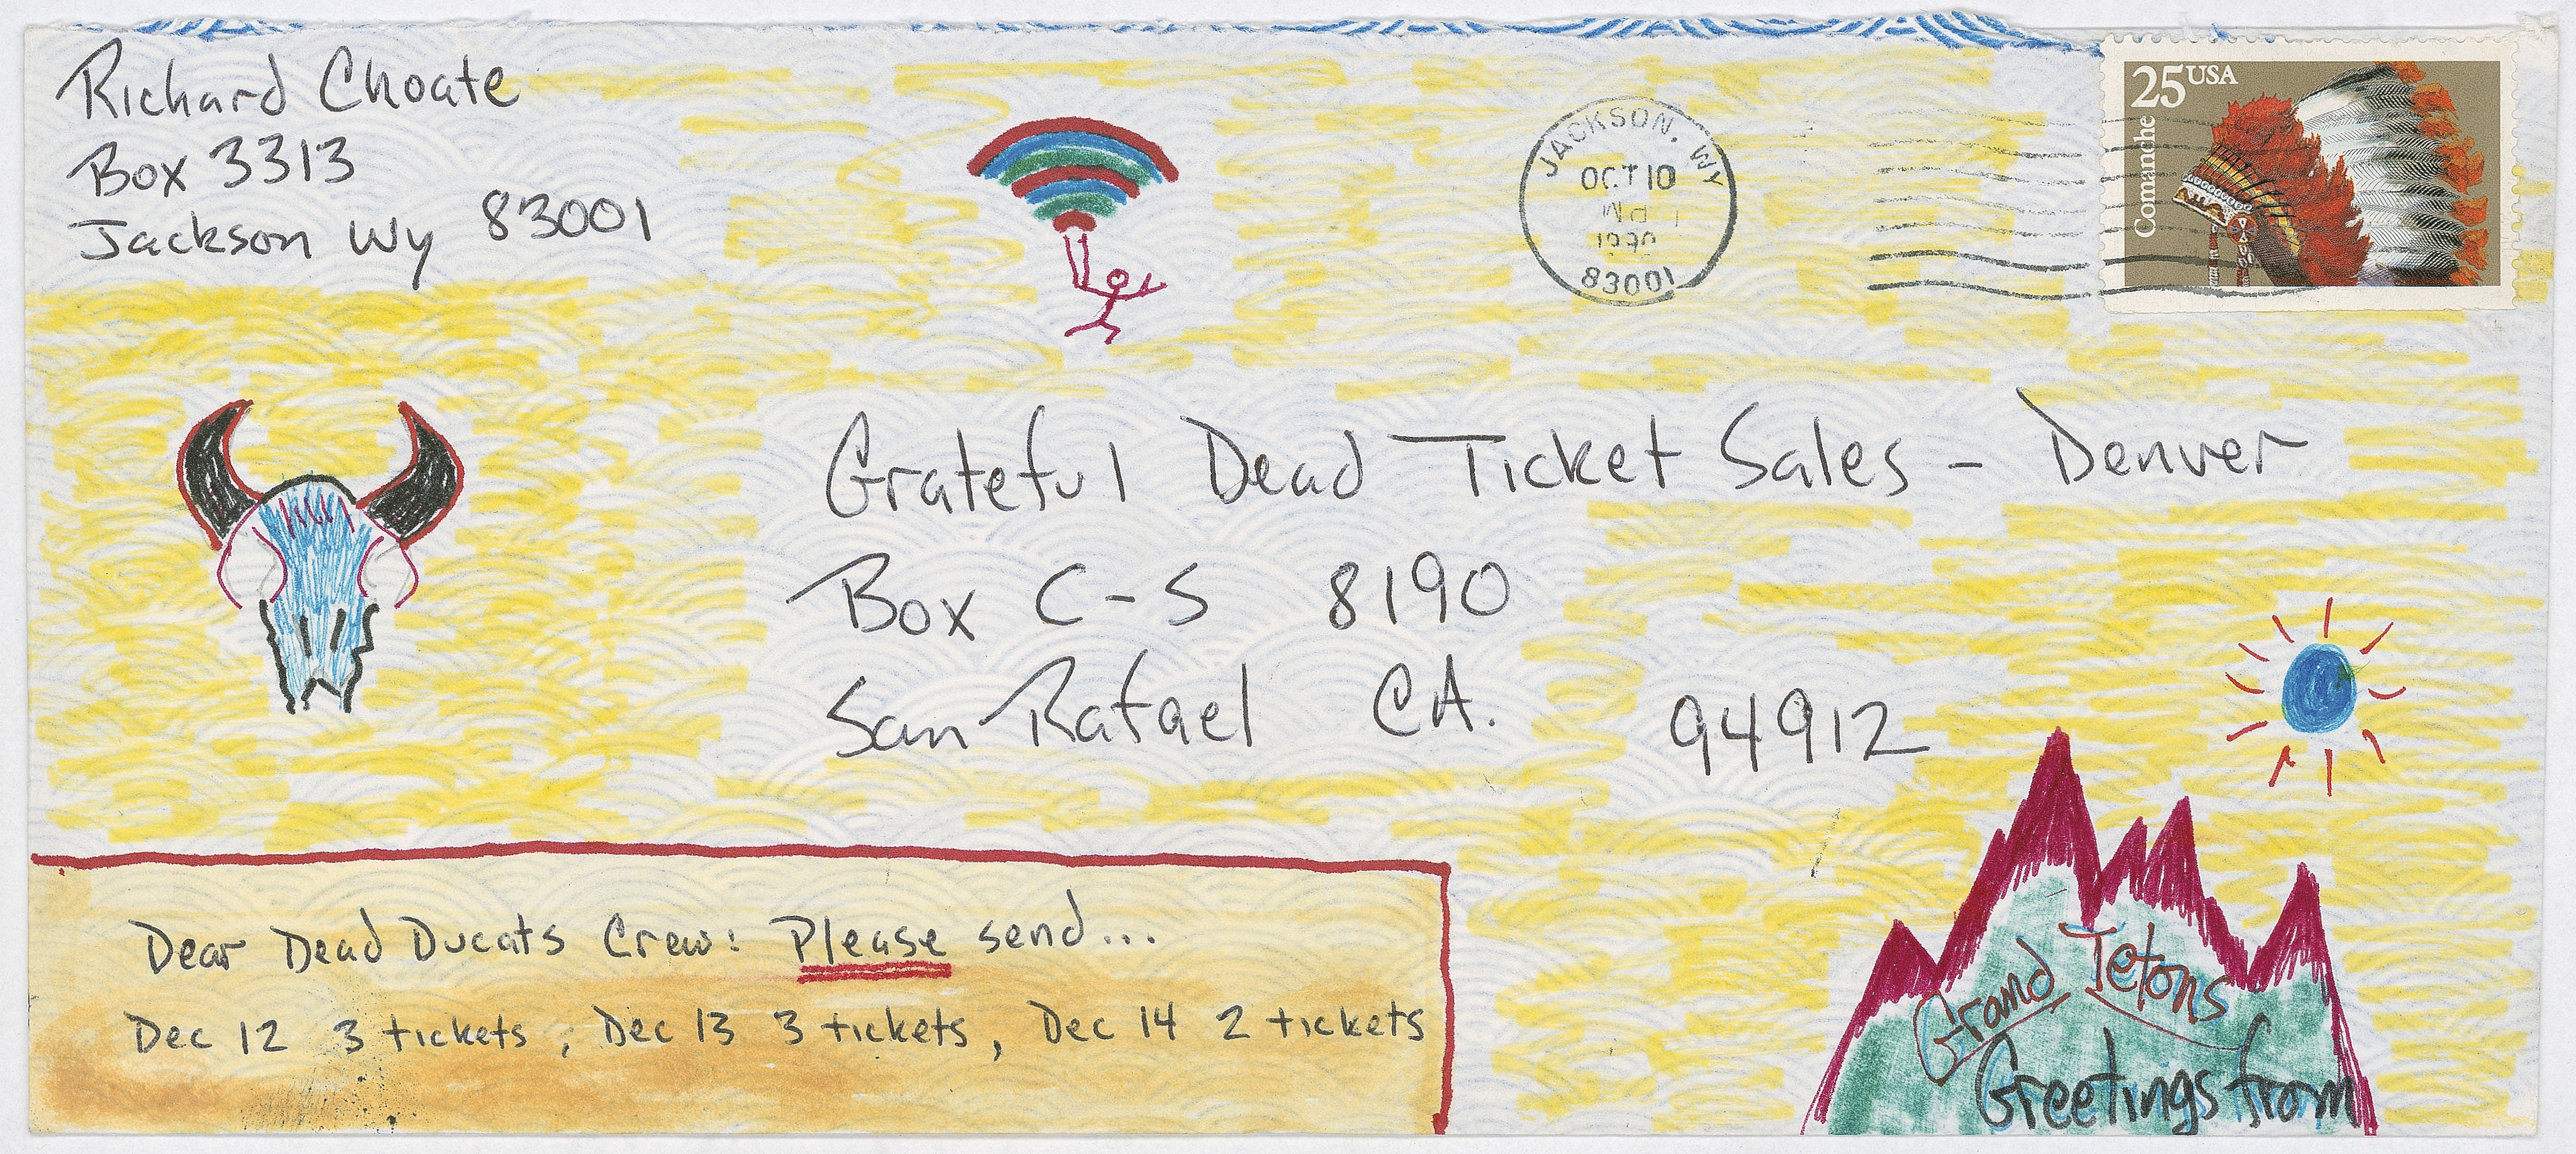 Richard Choate
Box 3313
Jackson Wy 83001
JACKSON, WY
OCT 10
PM
1990
83001
25 USA
Comanche
Grateful Dead Ticket Sales - Denver
Box C-S 8190
San Rafael CA. 94912
Dear Dead Ducats Crew: Please send...
Dec 12 3 tickets, Dec 13 3 tickets, Dec 14 2 tickets
Grand Tetons
Greetings from